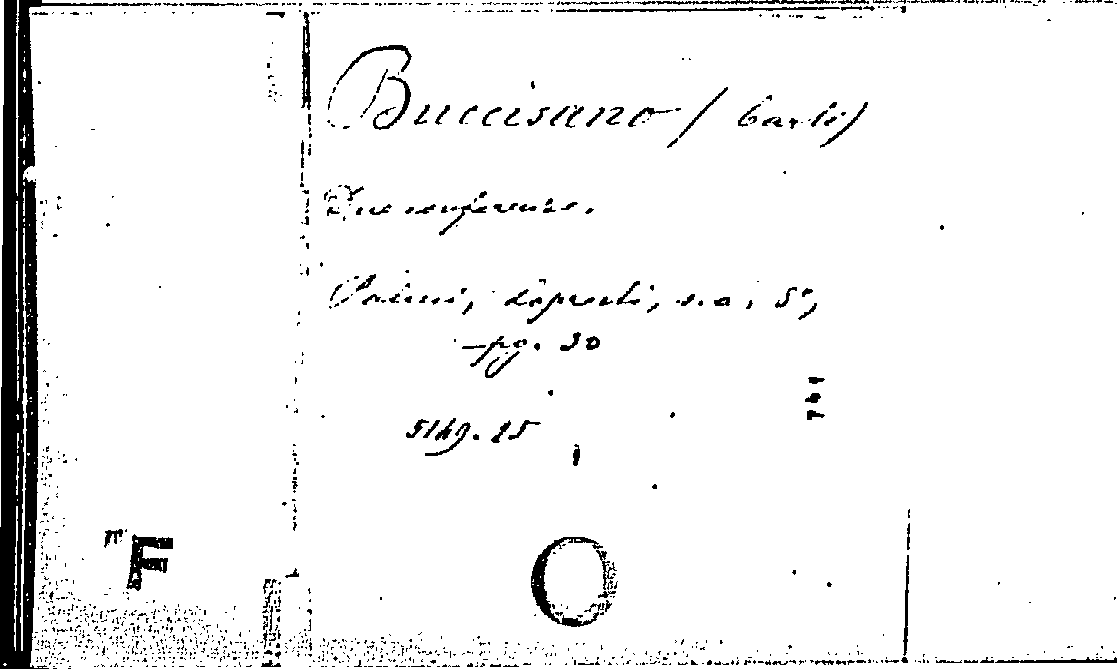 Buccisano / Carlo)
Due conferenze.
Palmi, Lopresti, s. a., 8°,
pg. 30
5149.25
F